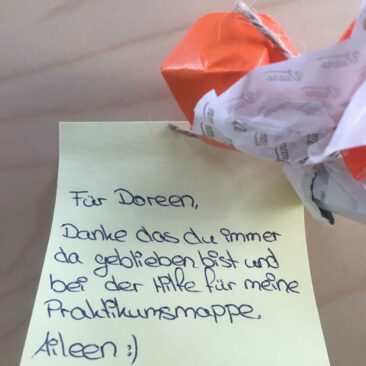 Für Doreen,
Danke das du immer
da geblieben bist und
bei der Hilfe für meine
Praktikumsmappe.
Aileen :)